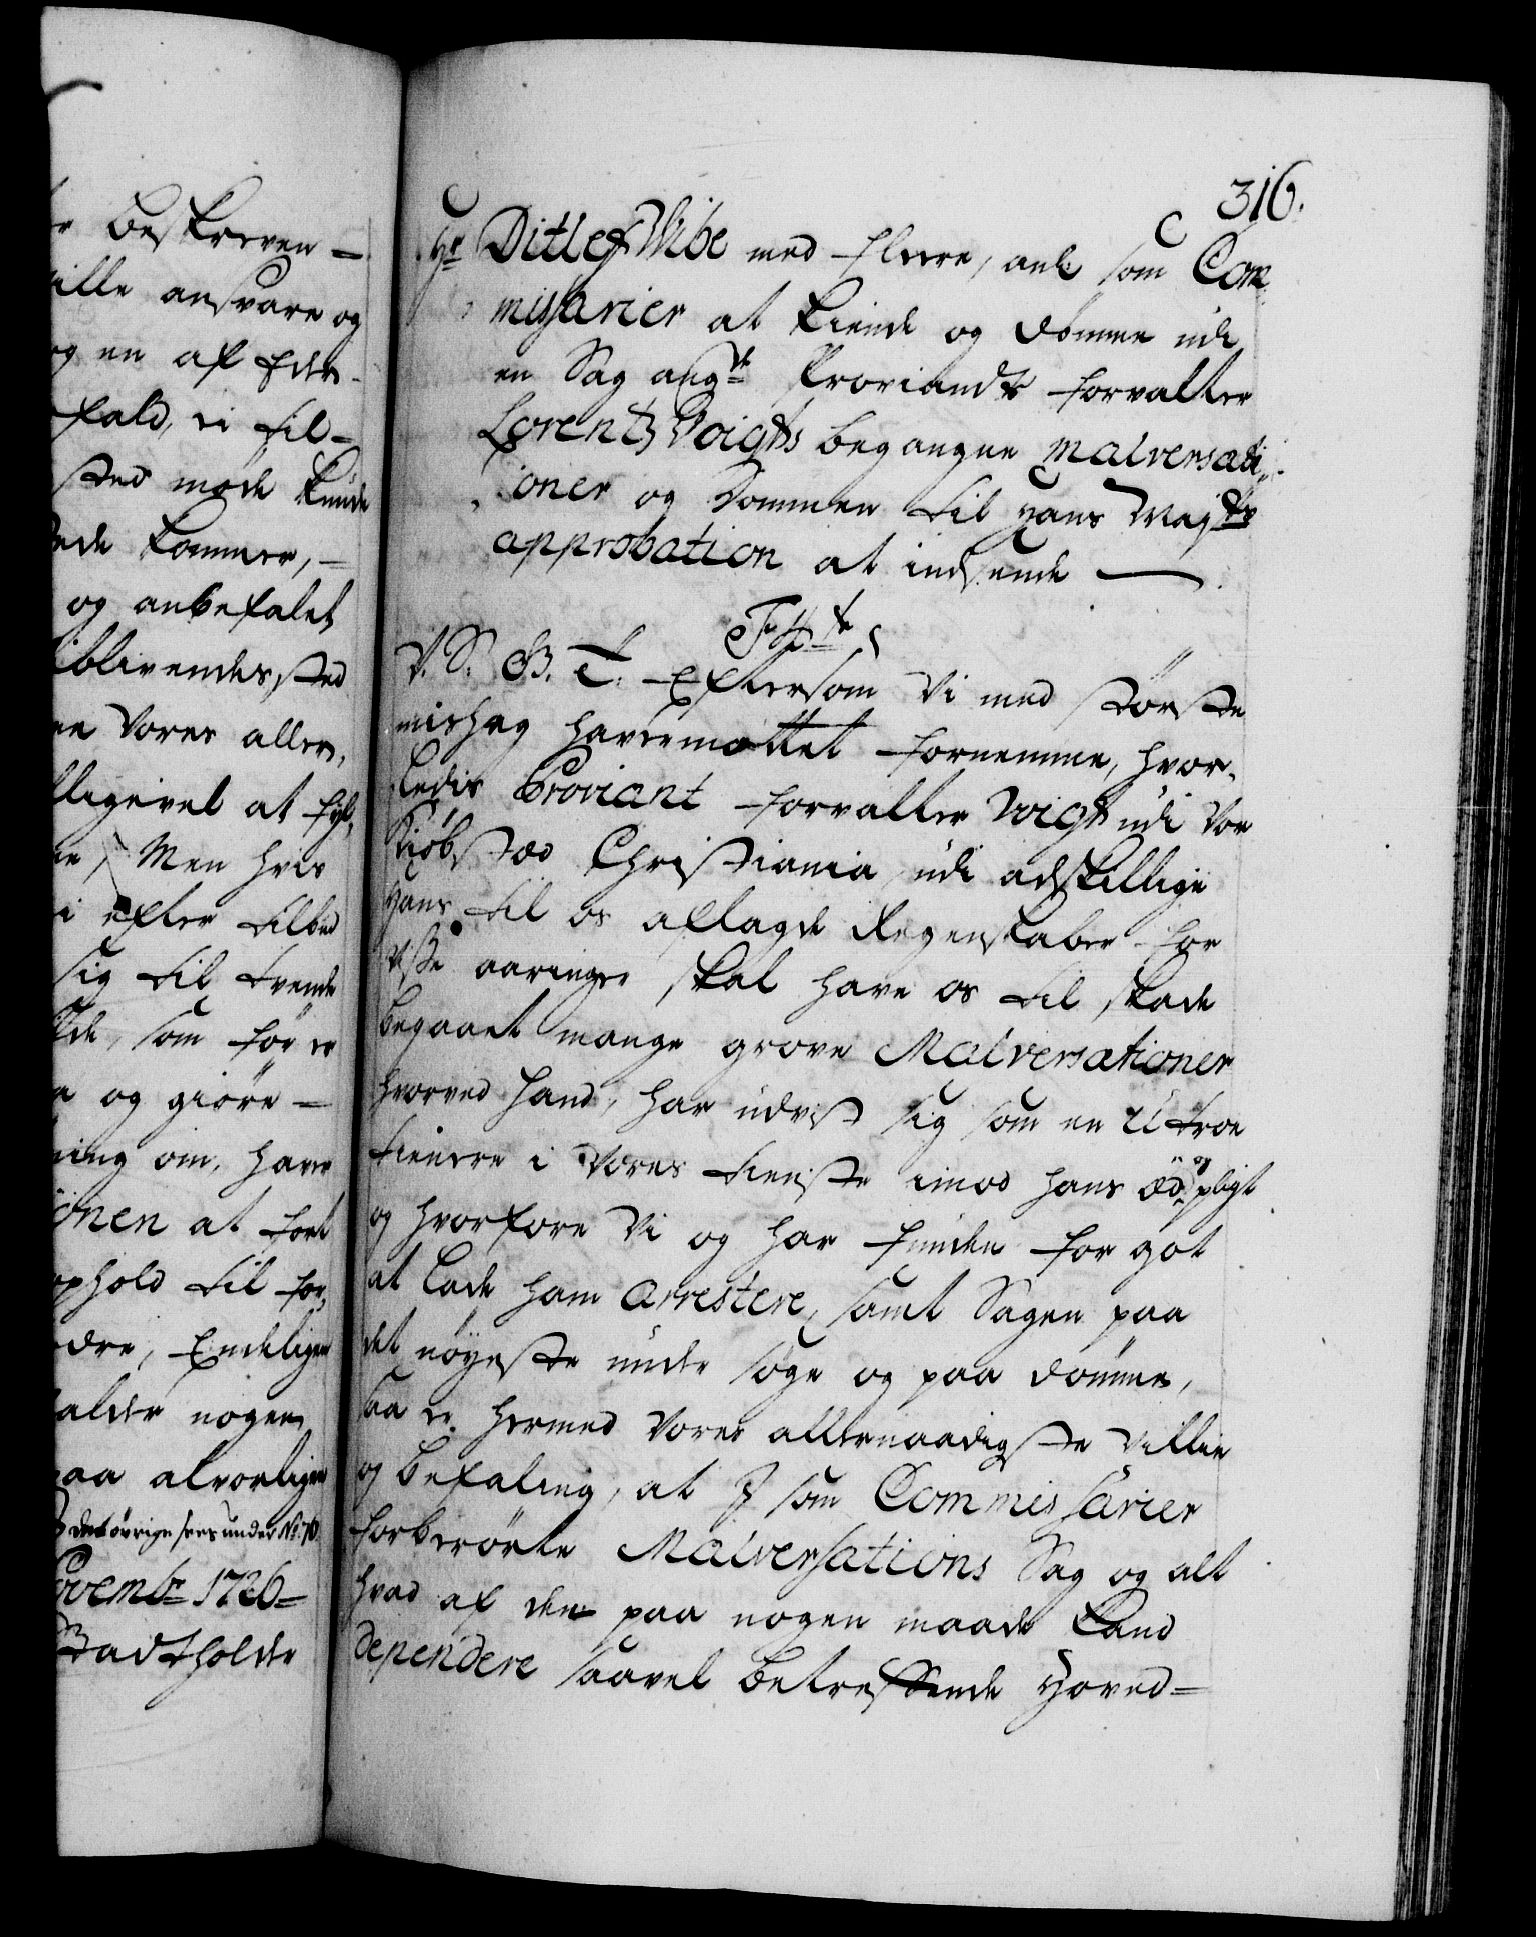 r beskreven =
ville ansvare og
og en af Eder
fald, ei til-
sted møde kunde
kommer, -
og anbefalet
blivendes sted
Vores aller,
lligevel at fyl-
Men hvis
i efter tilbud
sig til trende
som før er
og giøre =
ning om, haver
onen at fort
ophold til for-
dre, Endeligen
alder nogen
paa alvorligen
det øvrige sees under No: 70.
Novembr 1726 =
Stadtholder
316.
Hr Ditlef Wibe med fleere, anl: som Com-
missarier at kiende og dømme udi
en Sag angde Proviandt forvalter
Lorentz Voigts begangne malversati-
oner og Dommen til Hans Mayts
approbation at indsende —
F 4te
V. S. G. T. Eftersom Vi med største
mishag haver mottet fornemme, hvor-
ledis Proviant forvalter Voigt udi Vor
Kiøbstæd Christiania, udi adskillige
hans til os aflagde Regenskaber for
visse aaringer skal have os til skade
begaaet mange grove Malversationer
hvorved hand, har udvist sig som en Utroe
tienere i Vores tieniste imod hans æd og pligt
og hvorfore Vi og har funden for got
at lade ham Arrestere, samt Sagen paa
det nøyeste under søge og paa dømme,
saa er hermed Vores allernaadigste Villie
og befaling, at I som Commissarier
forberørte Malversations Sag og alt
hvad af den paa nogen maade kand
dependere saavel betreffende Hoved =